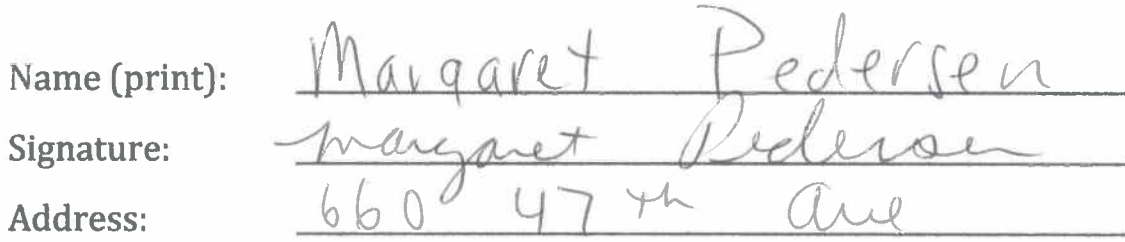 Name (print): Margaret Pedersen
Signature: Margaret Pedersen
Address: 660 47th Ave